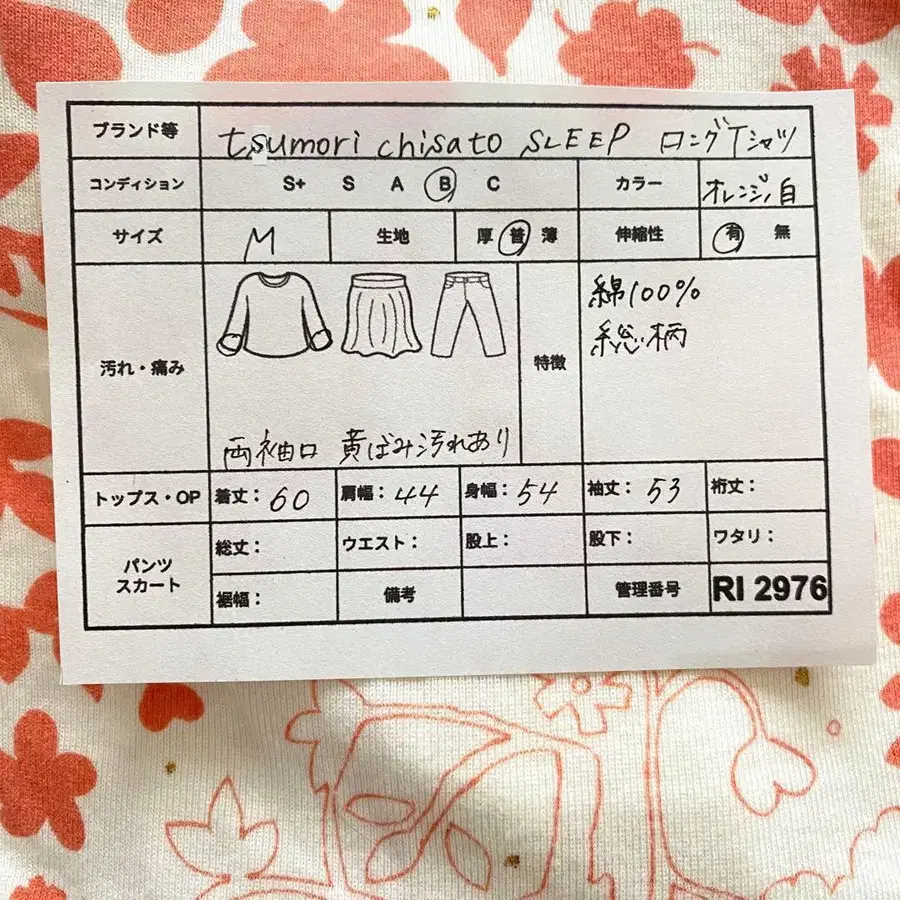 ブランド等 tsumori chisato SLEEP ロングTシャツ
コンディション S+ S A B C カラー オレンジ/白
サイズ M 生地 厚 普 薄 伸縮性 有 無
汚れ・痛み 特徴
綿100%
総柄
両袖口 黄ばみ汚れあり
トップス・OP 着丈: 60 肩幅: 44 身幅: 54 袖丈: 53 裄丈:
パンツ
スカート
総丈: ウエスト: 股上: 股下: ワタリ:
裾幅: 備考 管理番号 RI 2976